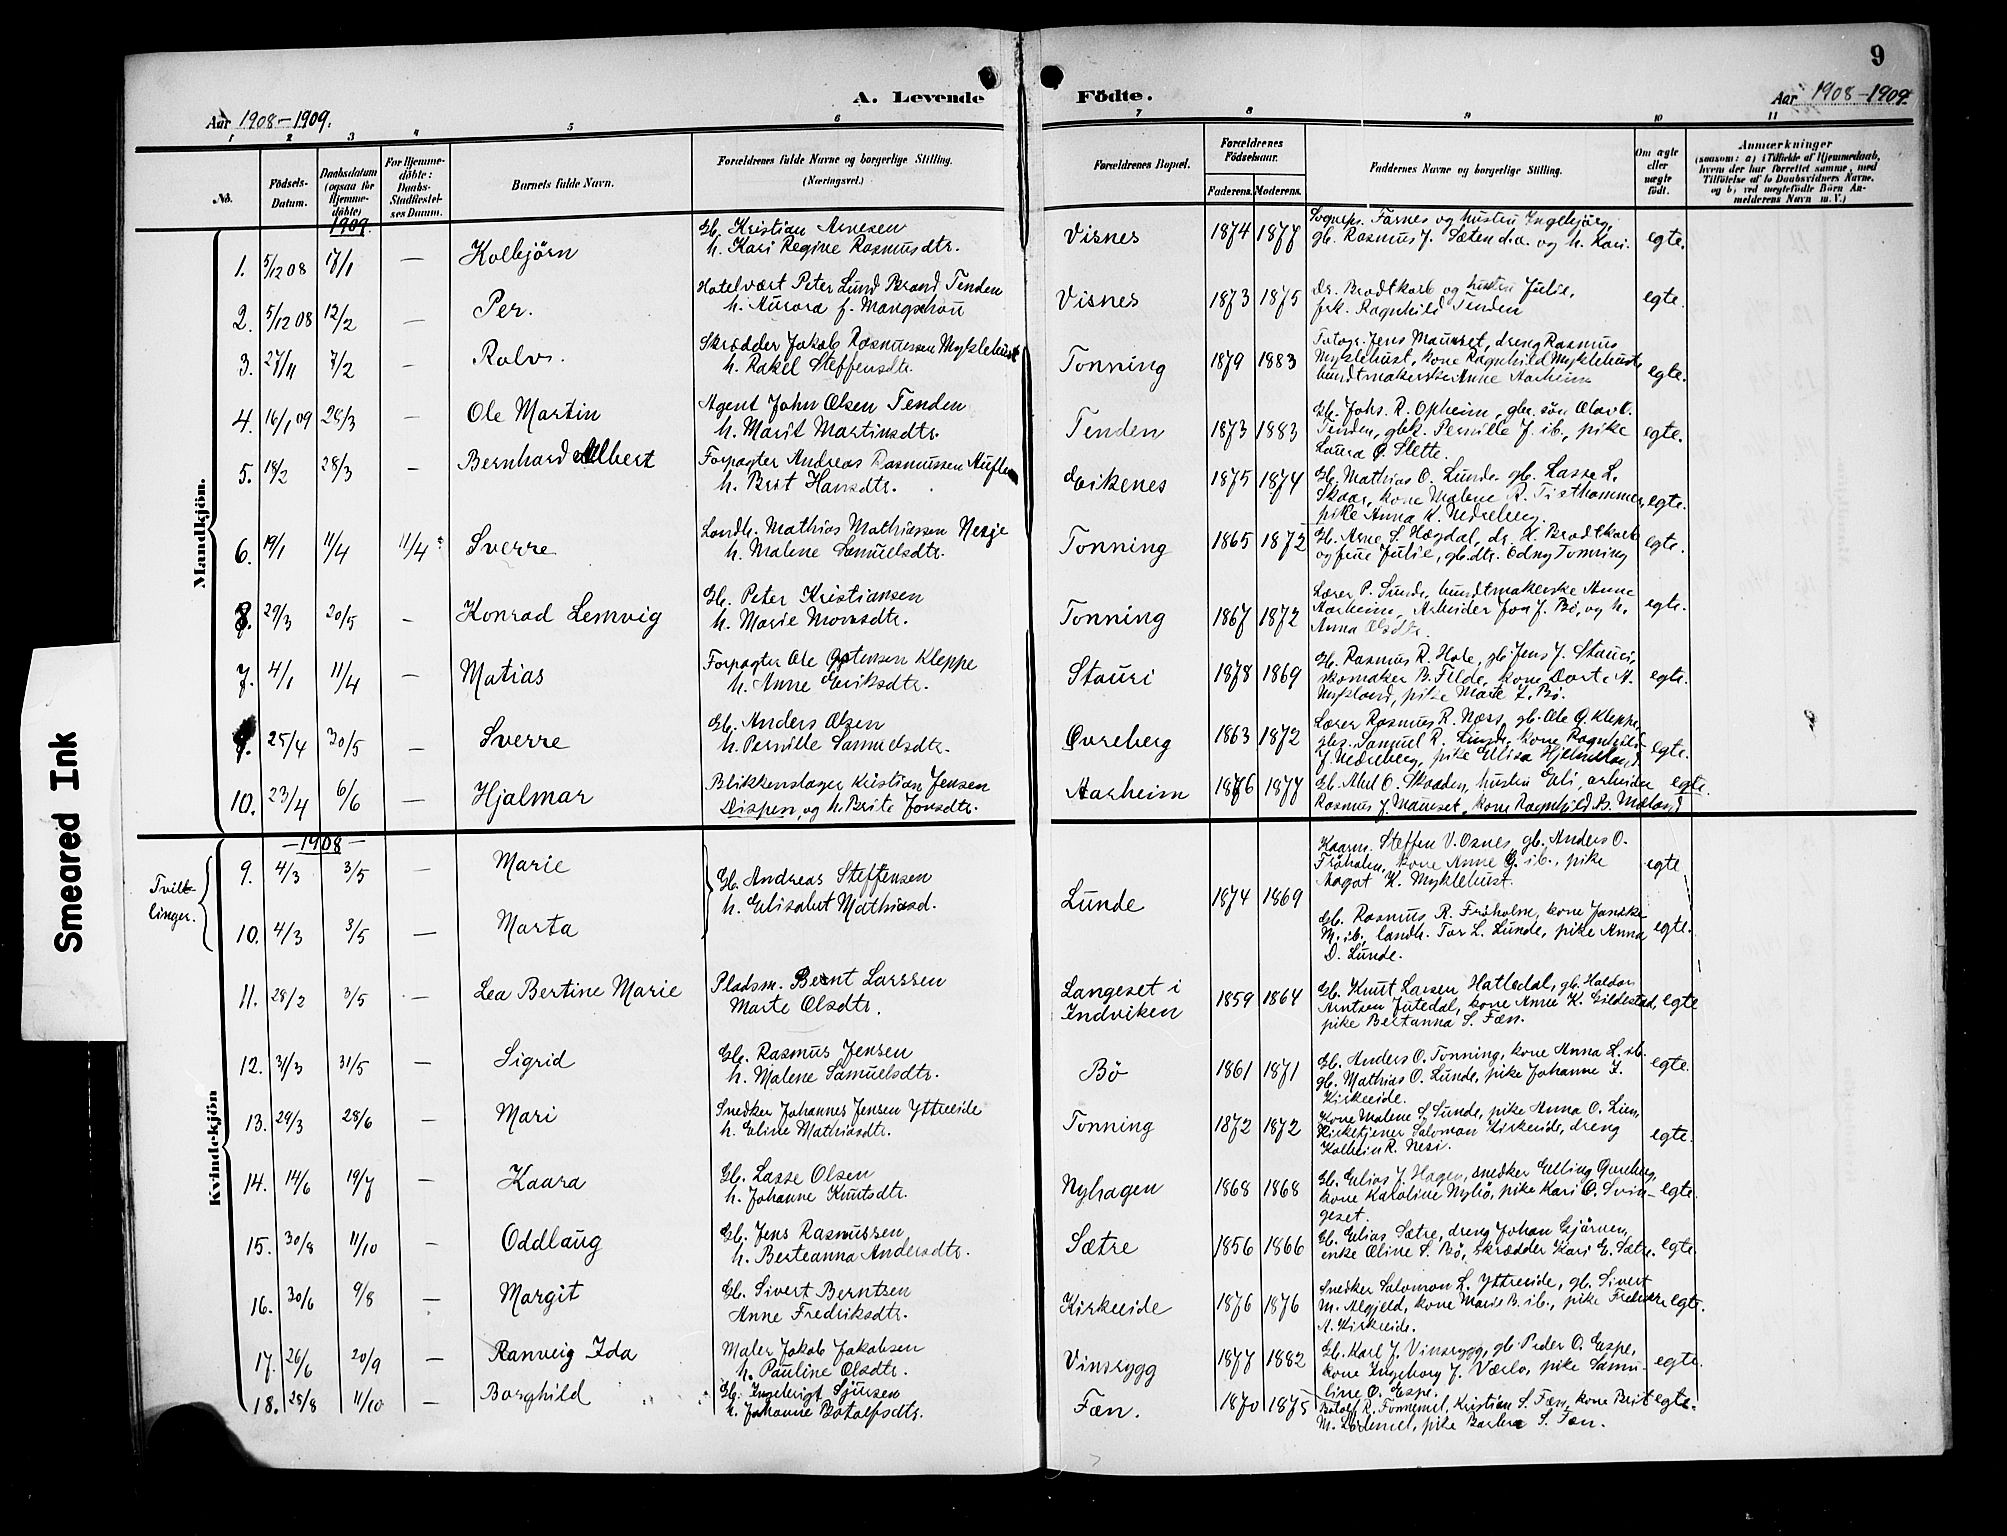 9
A. Levende Födte.
Aar 1908-1909.
Aar 1908-1909.
1 2 3 4 5 6 7 8 9 10 11
No.
Födsels-Datum.
Daabsdatum (ogsaa for Hjemmedöbte)
For Hjemmedöbte: Daabs-Stadfæstelses Datum.
Barnets fulde Navn.
Forældrenes fulde Navne og borgerlige Stilling. (Næringsvei.)
Forældrenes Bopæl.
Forældrenes Födselsaar.
Faderens. Moderens.
Faddernes Navne og borgerlige Stilling.
Om ægte eller uægte födt.
Anmærkninger
(saasom: a) i Tilfælde af Hjemmedaab, hvem der har forrettet samme, med Tilföielse af to Daabsvidners Navne, og b) ved uægtefödte Börn Anmelderens Navn m. V.)
Mandkjön.
1909.
1. 5/12 08 17/1 — Kolbjörn Gb. Kristian Arnesen Visnes 1874 1877 Sogneps. Farnes og hustru Ingebjørg, egte.
h. Kari Regine Rasmusdtr. gb. Rasmus J. Sæten d.a. og h. Kari.
2. 5/12 08 12/2 — Per. Hotelvært Peter Lund Brand Tenden Visnes 1873 1875 Dr. Brodtkorb og hustru Julie, egte.
h. Aurora f. Mangschou frk. Ragnhild Tenden
3. 27/11 7/2 — Rolv. Skrædder Jakob Rasmussen Myklebust Tonning 1879 1883 Fotogr. Jens Maurset, dreng Rasmus
h. Rakel Steffensdtr. Myklebust, kone Ragnhild Myklebust,
bundtmakerske Anne Aarheim egte.
4. 16/1 09 28/3 — Ole Martin Agent John Olsen Tenden Tenden 1873 1883 Gb. Johs. R. Opheim, gbr. søn Olav O.
h. Marit Martinsdtr. Tenden, gbk. Pernille J. ib., pike egte.
Laura O. Slette.
5. 18/2 28/3 — Bernhard Albert Forpagter Andreas Rasmussen Auflem Eikenes 1875 1874 Gb. Mathias O. Lunde, gb. Lasse L.
h. Brit Hansdtr. Skaar, kone Malene A. Tisthammer, egte.
pike Anna K. Nedreberg.
6. 19/1 11/4 11/4 Sverre Landh. Mathias Mathiassen Nesje Tonning 1865 1872 Gb. Arne S. Hægdal, dr. K. Brodtkorb egte.
h. Malene Samuelsdtr. og frue Julie, gb.dtr. Odny Tonning
8. 29/3 20/5 — Konrad Lemvig Gb. Peter Kristiansen Tonning 1867 1872 Lærer P. Sunde, bundtmakerske Anne egte.
h. Marie Monsdtr. Aarheim, Arbeider Jon J. Bö, og h.
Anna Olsdtr.
7. 4/1 11/4 — Matias Forpagter Ole Kleppe Stauri 1878 1869 Gb. Rasmus R. Hole, gb. Jens J. Stauri,
h. Anne Eriksdtr. skomaker B. Filde, kone Dorte A. egte.
Mykland, pike Marie L. Bö.
25/4 30/5 — Sverre Gb. Anders Olsen Övreberg 1863 1872 Lærer Rasmus R. Næss, gb. Ole O. Kleppe,
h. Pernille Samuelsdtr. gbs. Samuel R. Lunde, kone Ragnhild egte.
J. Nedreberg, pike Elisa Hjelmeland.
10. 23/4 6/6 — Hjalmar Blikkenslager Kristian Jensen Aarheim 1876 1877 Gb. Abel O. Skadden, hustru Eli, arbeider egte.
Dispen, og h. Brite Jonsdtr. Rasmus J. Maurset, kone Ragnhild B. Mæland
Kvindekjön
Tvillinger.
— 1908 —
9. 4/3 3/5 — Marie Gb. Andreas Steffensen Kaarm. Steffen V. Osnes, gb. Anders O.
h. Elisabet Mathiasd. Lunde 1874 1869 Fröholm, kone Anne G. ib., pike egte
Aagot K. Myklebust.
10. 4/3 3/5 — Marta Gb. Rasmus R. Fröholm, kone Janske
M. ib., landh. Tor L. Lunde, pike Anna egte.
D. Lunde.
11. 28/2 3/5 — Lea Bertine Marie Pladsm. Bernt Larssen Langeset i Indviken 1859 1864 Gb. Knut Larsen Hatledal, gb. Haldor
Marte Olsdtr. Arntsen Jutedal, kone Anne K. Gildestad, egte
pike Bertanna S. Fæn.
12. 31/3 31/5 — Sigrid Gb. Rasmus Jensen Bö 1861 1871 Gb. Anders O. Tonning, kone Anna L. ib. egte.
h. Malene Samuelsdtr. gb. Mathias O. Lunde, pike Johanne L.
Kirkeeide.
13. 29/3 28/6 — Mari Snedker Johannes Jensen Ytreeide Tonning 1872 1872 Kone Malene S. Sunde, pike Anna O. Lien,
h. Eline Mathiasdtr. Kirketjener Salomon Kirkeeide, dreng egte.
Kolbein R. Nesi.
14. 14/6 19/7 — Kaara Gb. Lasse Olsen Nyhagen 1868 1868 Gb. Elias J. Hagen, snedker Elling
h. Johanne Knutsdtr. kone Karoline Nybö, pike Kari O. Svin- egte.
geset.
15. 30/8 11/10 — Oddlaug Gb. Jens Rasmussen Sætre 1856 1866 Gb. Elias Sætre, dreng Johan Gjörven, egte.
h. Berteanna Andersdtr. enke Oline S. Bö, skrædder Kari E. Sætre.
16. 30/6 9/8 — Margit Gb. Sivert Berntsen Kirkeeide 1876 1876 Snedker Salomon L. Ytreeide, gb. Sivert
Anne Fredriksdtr. M. Algjeld, kone Marie B. ib., pike Fredrikke egte.
A. Kirkeeide.
17. 26/6 20/9 — Ranveig Ida Maler Jakob Jakobsen Vinsrygg 1877 1882 Gb. Karl J. Vinsrygg, gb. Peder O. Espe, egte.
h. Pauline Olsdtr. kone Ingeborg J. Værlo, pike Samu-
line O. Espe.
18. 28/8 11/10 — Borghild Gb. Ingebrigt Sjursen Fæn. 1870 1875 Botolf R. Fonnemel, Kristian S. Fæn, kone Brit egte.
h. Johanne Botolfsdtr. M. Lödemel, pike Barbra S. Fæn.
Smeared Ink